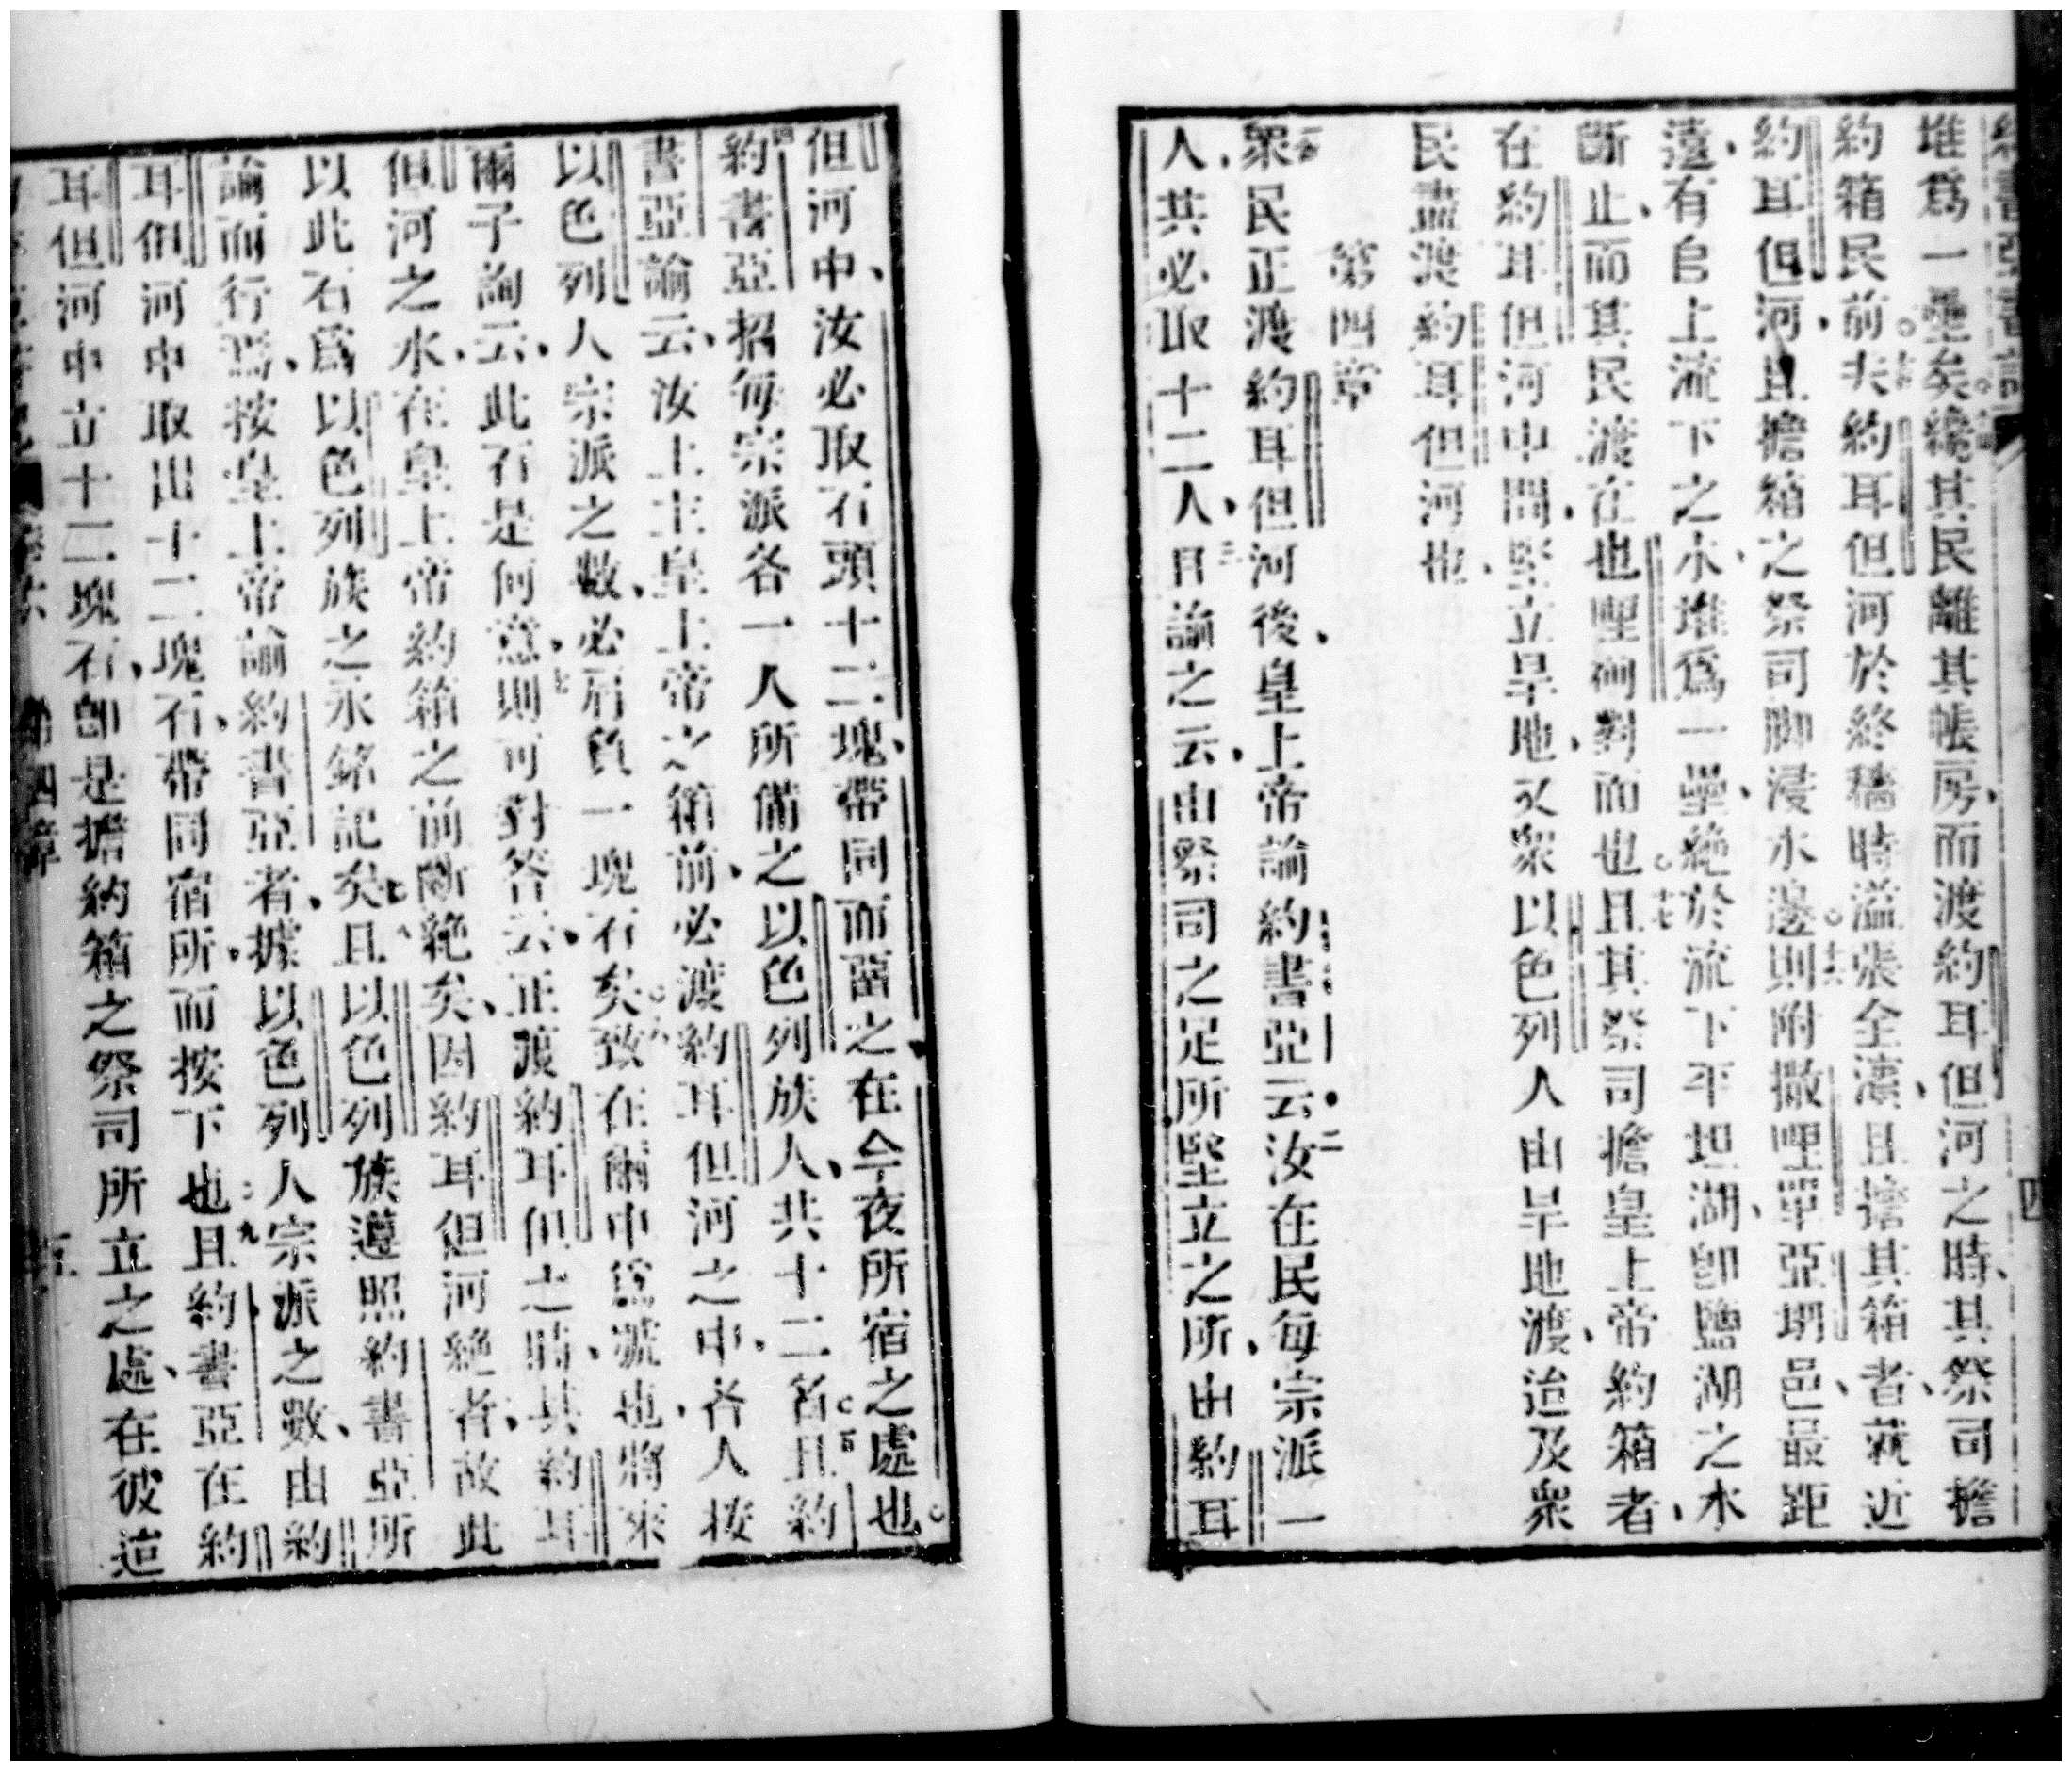 堆爲一壘矣纔其民離其帳房而渡約耳但河之時其祭司擔
約箱民前夫約耳但河於終穡時溢張全濱且擔其箱者就近
約耳但河且擔箱之祭司脚浸水邊則附撒哩單亞邑最距
遠有自上流下之水堆爲一壘絶於流下平坦湖卽鹽湖之水
斷止而其民渡在也哩𠯿對而也且其祭司擔皇上帝約箱者
在約耳但河中間堅立旱地又衆以色列人由旱地渡迨及衆
民盡渡約耳但河也
第四章
衆民正渡約耳但河後皇上帝諭約書亞云二汝在民每宗派一
人共必取十二人三且諭之云由祭司之足所堅立之所由約耳
但河中汝必取石頭十二塊帶同而留之在今夜所宿之處也
四約書亞招每宗派各一人所備之以色列族人共十二名五且約
書亞諭云汝上主皇上帝之箱前必渡約耳但河之中各人按
以色列人宗派之數必肩負一塊石矣六致在爾中爲號也將來
爾子詢云此石是何意七則可對答云正渡約耳但之時其約耳
但河之水在皇上帝約箱之前斷絶矣因約耳但河絶者故此
以此石爲以色列族之永銘記矣八且以色列族遵照約書亞所
諭而行焉按皇上帝諭約書亞者據以色列人宗派之數由約
耳但河中取出十二塊石帶同宿所而按下也九且約書亞在約
耳但河中立十二塊石卽是擔約箱之祭司所立之處在彼迨
第四章 五